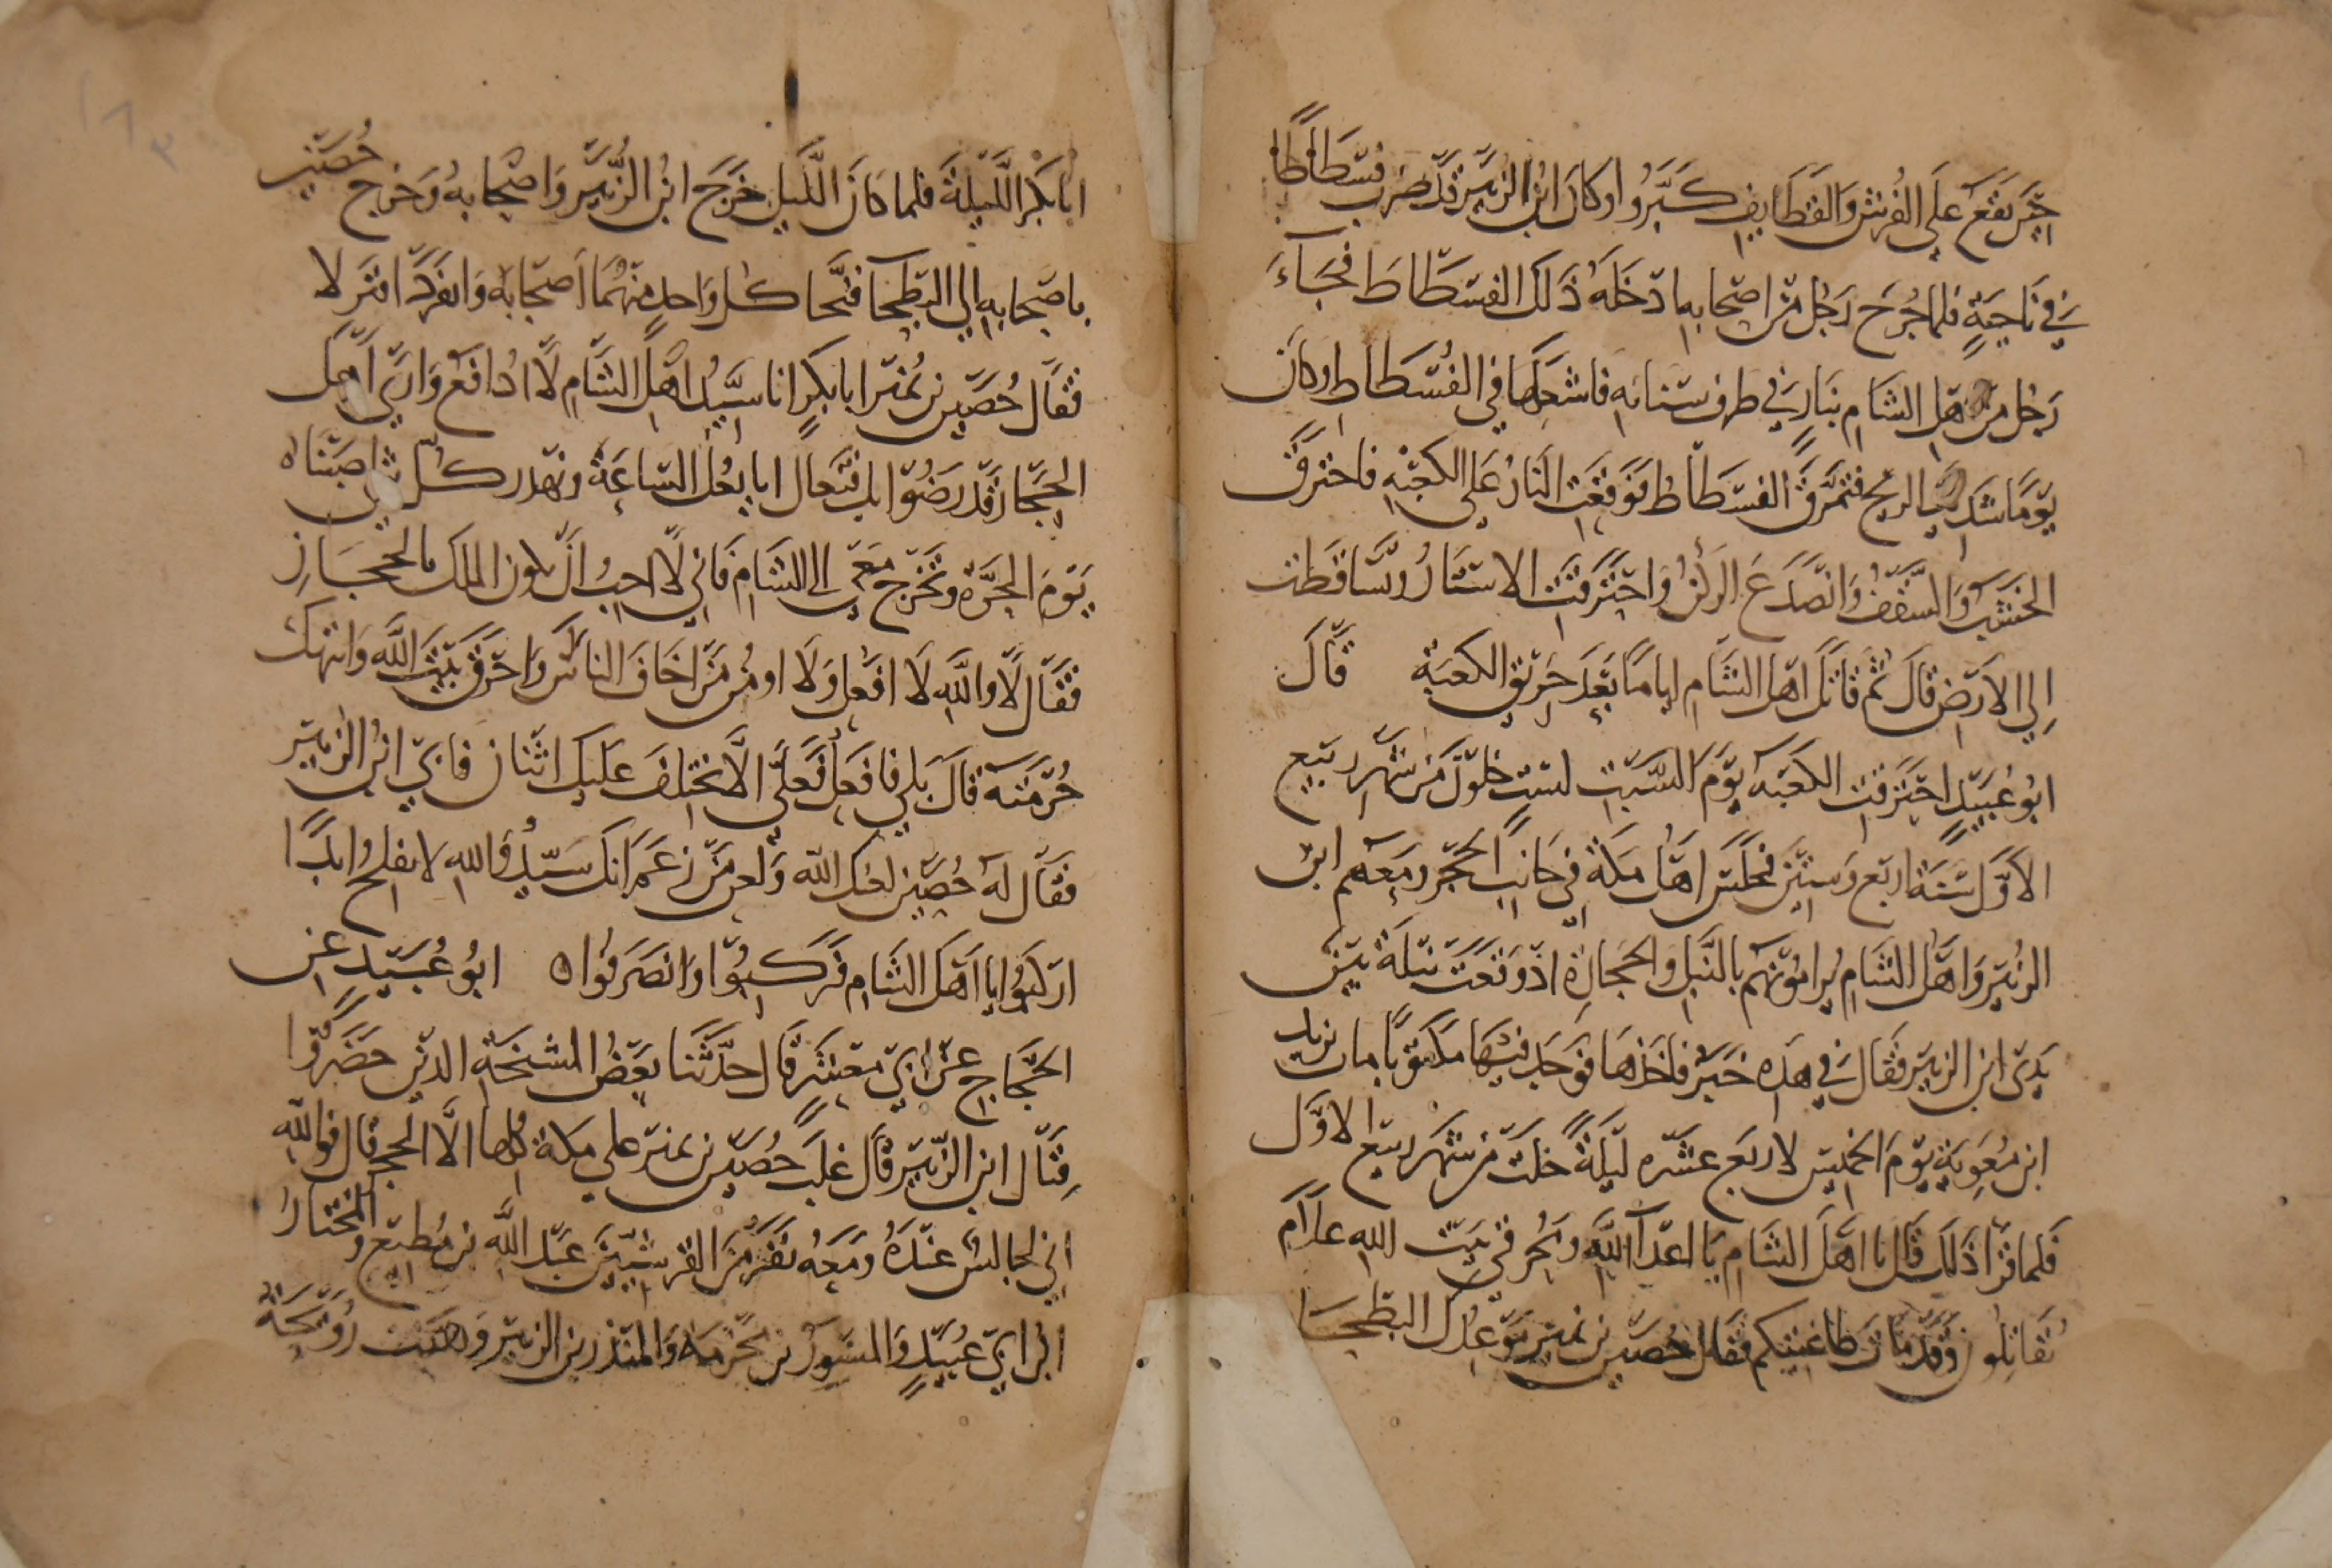 حجر يقع على الفرش والقطايف كبروا وكان ابن الزبير قد ضرب فسطاطا
في ناحية فلما جرح رجل من اصحابه ادخله ذلك الفسطاط فجاء
رجل من اهل الشام بنار في طرف سنانه فاشعلها في الفسطاط وكان
يوما شديد الريح فتمزق الفسطاط فوقعت النار على الكعبة فاحترق
الخشب والسقف وانصدع الركن واحترقت الاستار وتساقطت
الى الارض قال ثم قاتل اهل الشام اياما بعد حريق الكعبة قال
ابو عبيد احترقت الكعبة يوم السبت لست خلون من شهر ربيع
الاول سنة اربع وستين فجلس اهل مكة في جانب الحجر ومعهم ابن
الزبير واهل الشام يرامونهم بالنبل والحجارة اذ وقعت نبلة بين
يدي ابن الزبير فقال في هذه خبر فاخذها فوجد فيها مكتوبا مات يزيد
ابن معوية يوم الخميس لاربع عشره ليلة خلت من شهر ربيع الاول
فلما قرا ذلك قال يا اهل الشام يا اعدا الله ومحرقي بيت الله علام
تقاتلون وقد مات طاغيتكم فقال حصين بن نمير موعدك البطحا
ابا بكر الليلة فلما كان الليل خرج ابن الزبير واصحابه وخرج حصين
باصحابه الى البطحا فنحا كل واحد منهما اصحابه وانفردا فنزلا
فقال حصين بن نمير ابا بكر انا سيد اهل الشام لا ادافع وارى اهل
الحجاز قد رضوا بك فتعال ابايعك الساعة ونهدر كل شي اصبناه
يوم الحرة وتخرج معي الى الشام فاني لا احب ان يكون الملك بالحجاز
فقال لا والله لا افعل ولا اومن من اخاف الناس واحرق بيت الله وانتهك
حرمته قال بلى فافعل فعلى الا يختلف عليك اثنان فابى ابن الزبير
فقال له حصين لعنك الله ولعن من زعم انك سيد والله لا تفلح ابدا
اركبوا يا اهل الشام فركبوا وانصرفوا ه ابو عبيد عن
الحجاج عن ابي معشر قال حدثنا بعض المشيخة الذين حضروا
قتال ابن الزبير قال غلب حصين بن نمير على مكة كلها الا الحجر قال فوالله
اني لجالس عنده ومعه نفر من القرشيين عبد الله بن مطيع والمختار
ابن ابي عبيد والمسور بن مخرمة والمنذر بن الزبير وهبت رويحة